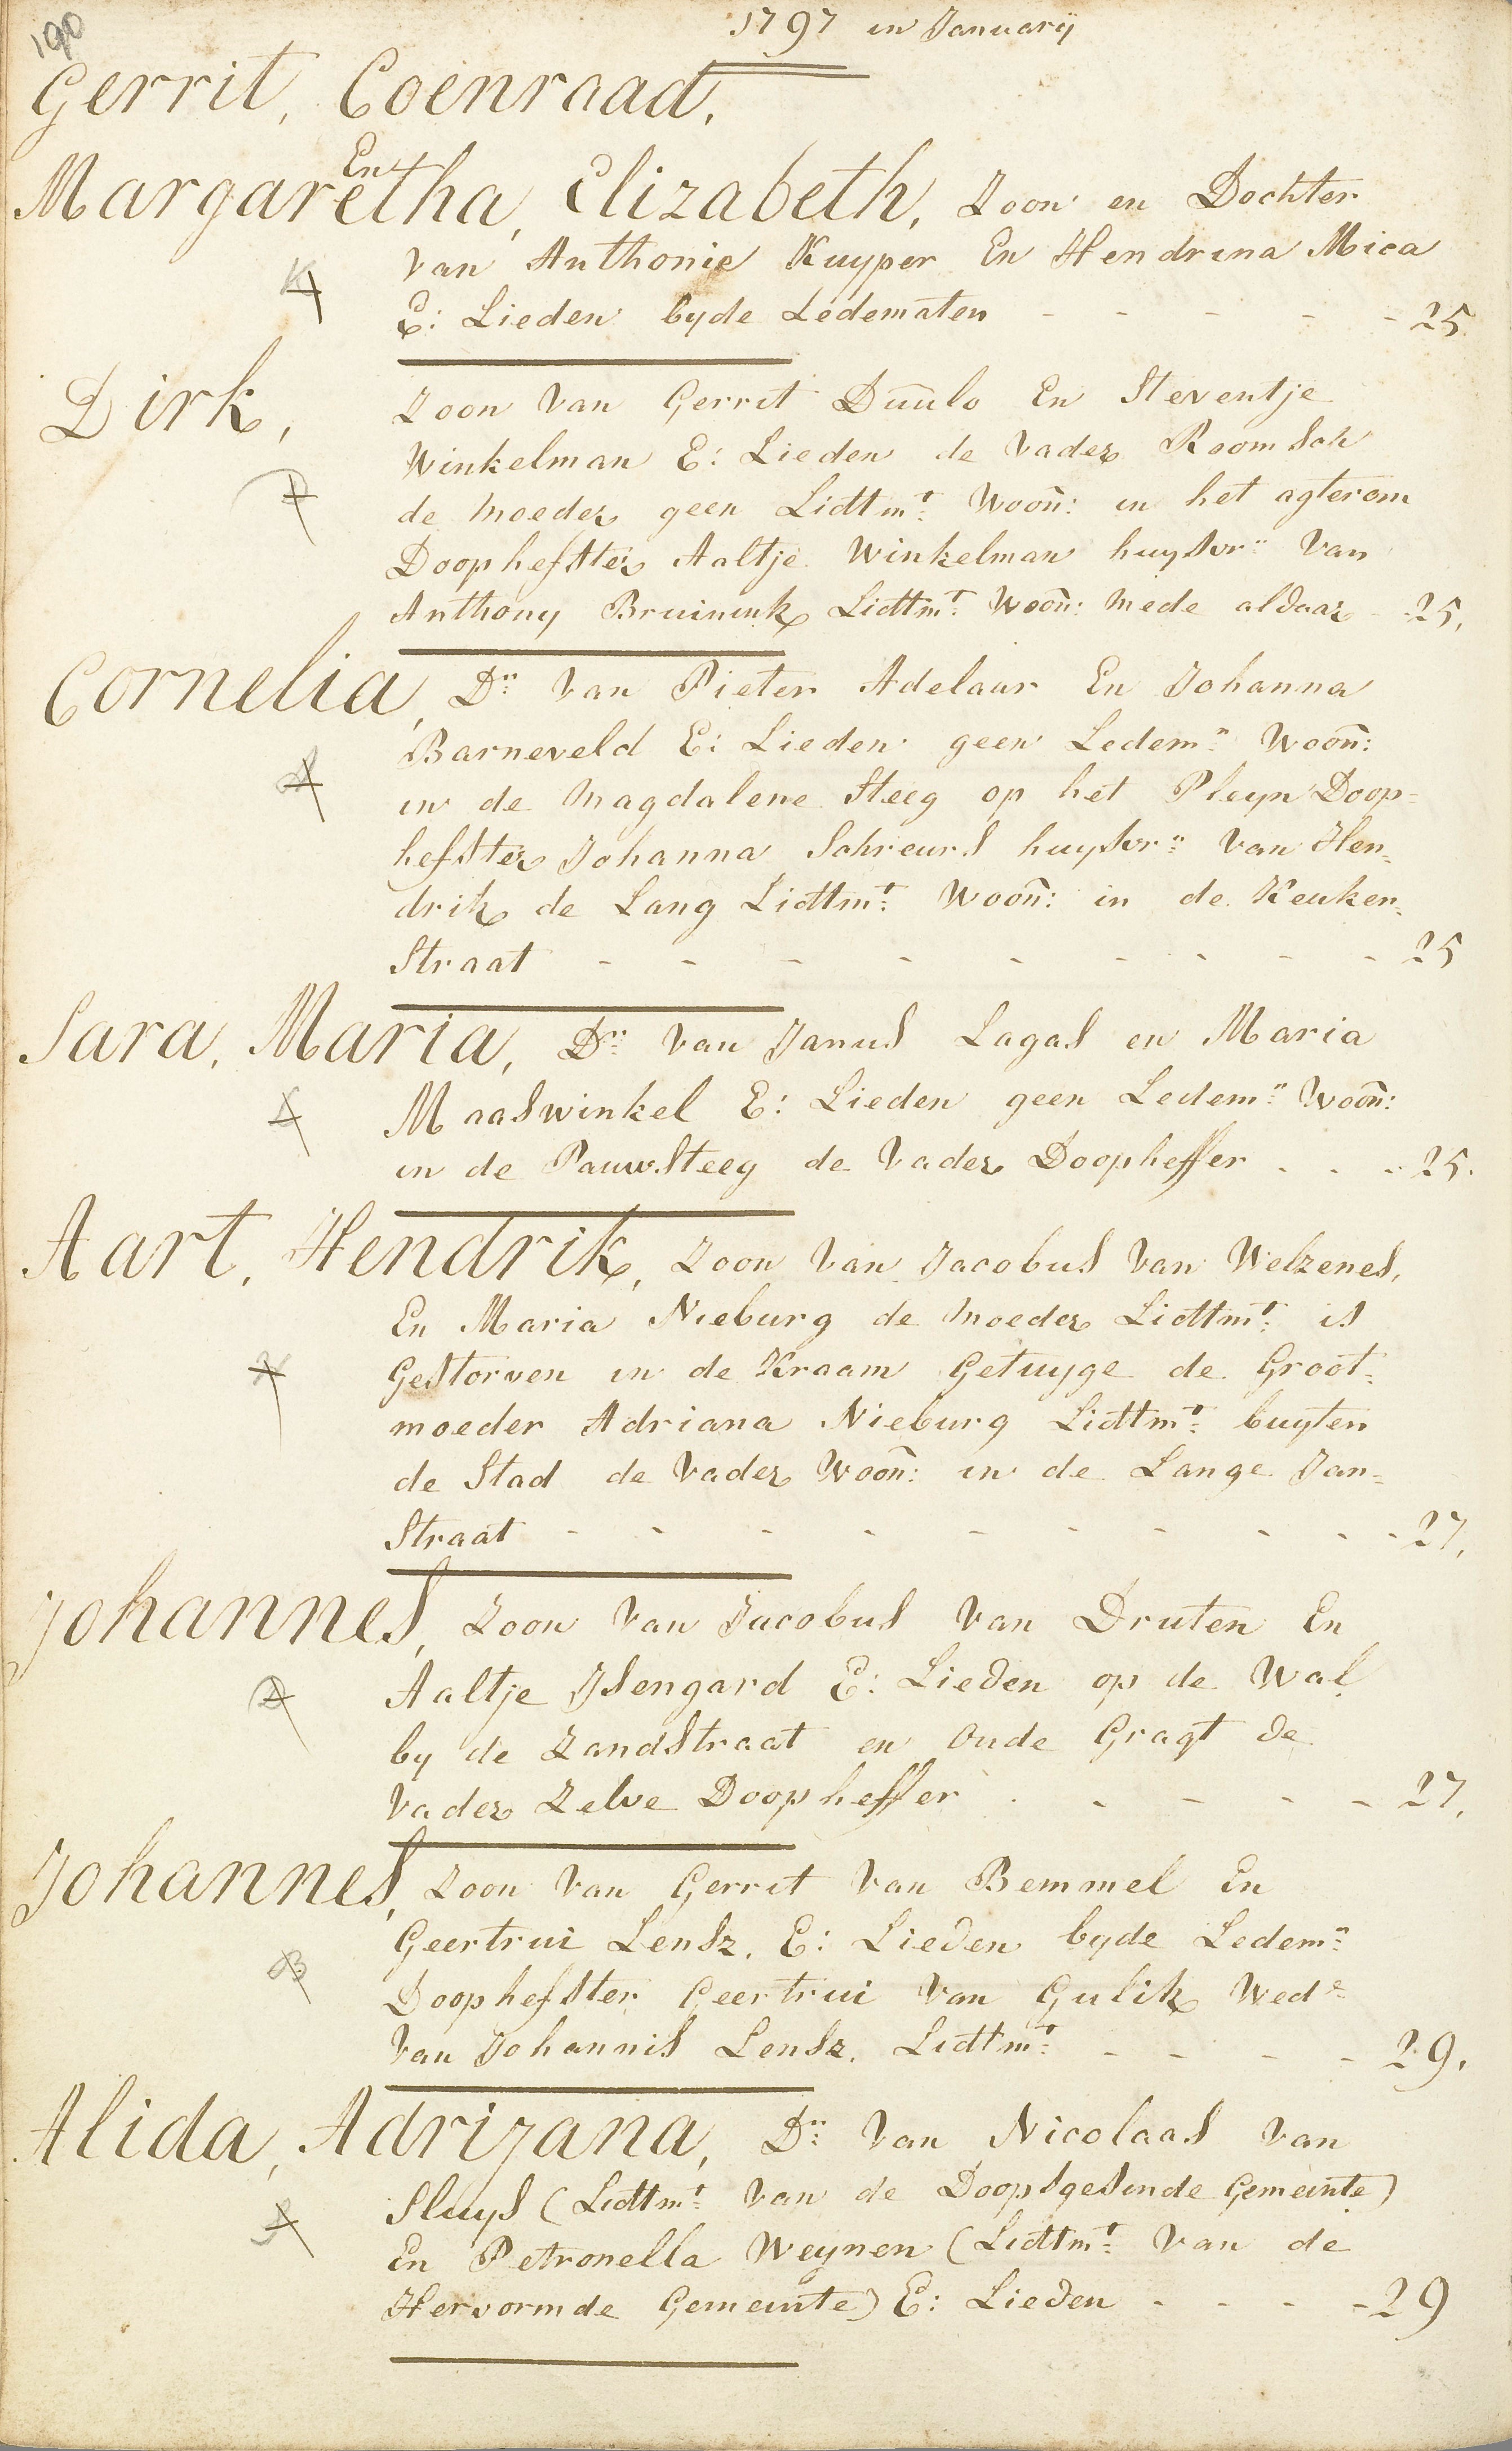 190
1797 in Januarÿ
Gerrit, Coenraad,
En
Margaretha, Elizabeth, Zoon en Dochter
van Anthonie Kuyper En Hendrina Mica
E: Lieden byde Ledematen - - - - - 25
K
Dirk, Zoon Van Gerrit Duulo En Steventje
Winkelman E: Lieden de Vader Roomsch
D
de Moeder geen Lidtmt: Woon: in het agterom
Doophefster Aaltje Winkelman huysvr: Van
Anthony Bruinink Lidtmt: Woon: mede aldaar - 25,
Cornelia, Dr: Van Pieter Adelaar En Johanna
Barneveld E: Lieden geen Ledemn: Woon:
A
in de Magdalene Steeg op het Pleyn Doop=
hefster Johanna Schreurs huysvr: Van Hen=
drik de Lang Lidtmt: Woon: in de Keuken=
Straat - - - - - - - - - 25
Sara, Maria, Dr: Van Janus Lagas en Maria
Maaswinkel E: Lieden geen Ledemn: Woon:
L
in de PauwSteeg de Vader Doopheffer - - - 25.
Aart, Hendrik, Zoon Van Jacobus Van Welzenes,
En Maria Nieburg de Moeder Lidtmt: is
Gestorven in de Kraam Getuyge de Groot=
moeder Adriana Nieburg Lidtmt: buyten
de Stad de Vader Woon: in de Lange Jan=
Straat - - - - - - - - - - 27,
Johannes, Zoon Van Jacobus Van Druten En
Aaltje Isengard E: Lieden op de Wal
D
by de Zandstraat en Oude Gragt de
Vader Zelve Doopheffer - - - - - 27,
Johannes, Zoon Van Gerrit Van Bemmel En
Geertrui Lensz, E: Lieden byde Ledemn:
B
Doophefster Geertrui Van Gulik Wede:
Van Johannis Lensz, Lidtmt: - - - - 29,
Alida, Adrijana, Dr: Van Nicolaas Van
Sluys (Lidtmt: Van de Doopsgesinde Gemeinte)
S
En Petronella Weynen (Lidtmt: Van de
Hervormde Gemeinte) E: Lieden - - - - 29